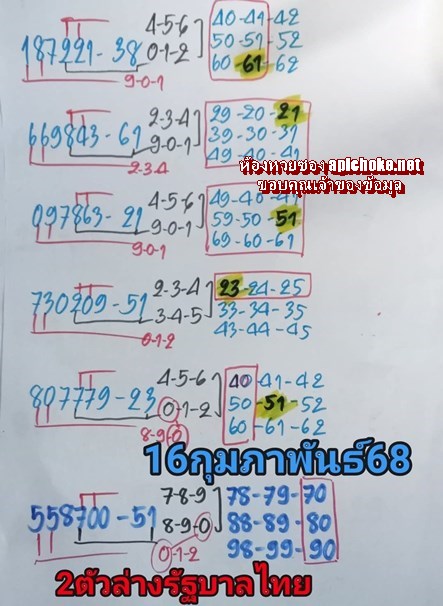 4-5-6 40-41-42
187221-38 0-1-2 50-51-52
60-61-62
9-0-1
2-3-4 29-20-21
669843-61 9-0-1 39-30-31
49-40-41
2-3-4
ห้องหวยซอง apichoke.net
ขอบคุณเจ้าของข้อมูล
4-5-6 49-40-41
097863-21 9-0-1 59-50-51
69-60-61
9-0-1
2-3-4 23-24-25
730209-51 3-4-5 33-34-35
43-44-45
0-1-2
4-5-6 40-41-42
807779-23 0-1-2 50-51-52
60-61-62
8-9-0
16กุมภาพันธ์68
7-8-9 78-79-70
558700-51 8-9-0 88-89-80
98-99-90
0-1-2
2ตัวล่างรัฐบาลไทย